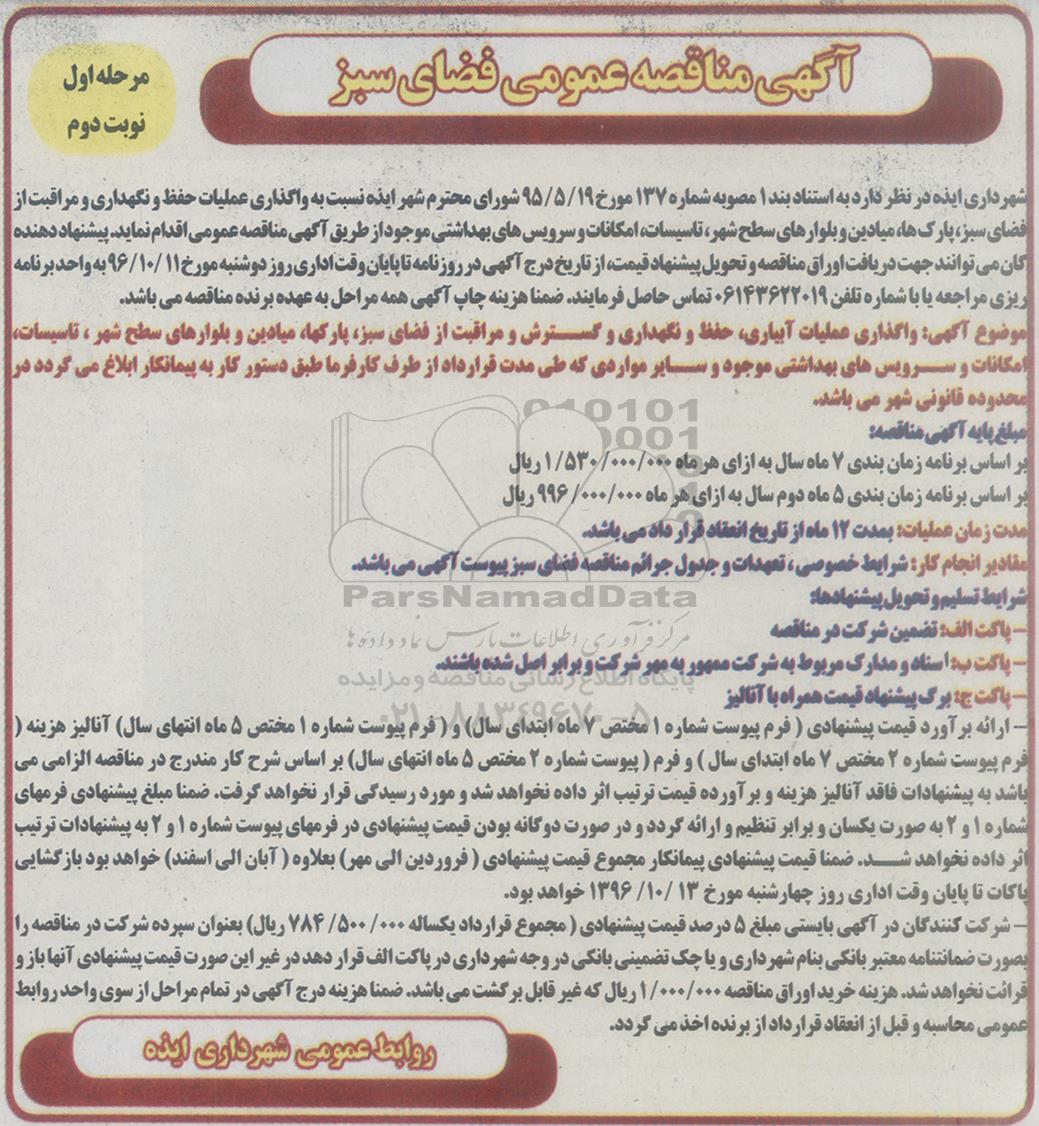 آگهی مناقصه عمومی فضای سبز
مرحله اول
نوبت دوم
شهرداری ایذه در نظر دارد به استناد بند ۱ مصوبه شماره ۱۳۷ مورخ ۹۵/۵/۱۹ شورای محترم شهر ایذه نسبت به واگذاری عملیات حفظ و نگهداری و مراقبت از
فضای سبز، پارک ها، میادین و بلوارهای سطح شهر، تاسیسات، امکانات و سرویس های بهداشتی موجود از طریق آگهی مناقصه عمومی اقدام نماید. پیشنهاد دهنده
گان می توانند جهت دریافت اوراق مناقصه و تحویل پیشنهاد قیمت، از تاریخ درج آگهی در روزنامه تا پایان وقت اداری روز دوشنبه مورخ ۹۶/۱۰/۱۱ به واحد برنامه
ریزی مراجعه یا با شماره تلفن ۰۶۱۴۳۶۲۲۰۱۹ تماس حاصل فرمایند. ضمنا هزینه چاپ آگهی همه مراحل به عهده برنده مناقصه می باشد.
موضوع آگهی: واگذاری عملیات آبیاری، حفظ و نگهداری و گسترش و مراقبت از فضای سبز، پارکها، میادین و بلوارهای سطح شهر ، تاسیسات،
امکانات و سرویس های بهداشتی موجود و سایر مواردی که طی مدت قرارداد از طرف کارفرما طبق دستور کار به پیمانکار ابلاغ می گردد در
محدوده قانونی شهر می باشد.
مبلغ پایه آگهی مناقصه:
بر اساس برنامه زمان بندی ۷ ماه سال به ازای هر ماه ۱/۵۳۰/۰۰۰/۰۰۰ ریال
بر اساس برنامه زمان بندی ۵ ماه دوم سال به ازای هر ماه ۹۹۶/۰۰۰/۰۰۰ ریال
مدت زمان عملیات: بمدت ۱۲ ماه از تاریخ انعقاد قرار داد می باشد.
مقادیر انجام کار: شرایط خصوصی ، تعهدات و جدول جرائم مناقصه فضای سبز پیوست آگهی می باشد.
شرایط تسلیم و تحویل پیشنهادها:
– پاکت الف: تضمین شرکت در مناقصه
– پاکت ب: اسناد و مدارک مربوط به شرکت ممهور به مهر شرکت و برابر اصل شده باشند.
– پاکت ج: برگ پیشنهاد قیمت همراه با آنالیز
– ارائه برآورد قیمت پیشنهادی ( فرم پیوست شماره ۱ مختص ۷ ماه ابتدای سال) و ( فرم پیوست شماره ۱ مختص ۵ ماه انتهای سال) آنالیز هزینه (
فرم پیوست شماره ۲ مختص ۷ ماه ابتدای سال ) و فرم ( پیوست شماره ۲ مختص ۵ ماه انتهای سال) بر اساس شرح کار مندرج در مناقصه الزامی می
باشد به پیشنهادات فاقد آنالیز هزینه و برآورده قیمت ترتیب اثر داده نخواهد شد و مورد رسیدگی قرار نخواهد گرفت. ضمنا مبلغ پیشنهادی فرمهای
شماره ۱ و ۲ به صورت یکسان و برابر تنظیم و ارائه گردد و در صورت دوگانه بودن قیمت پیشنهادی در فرمهای پیوست شماره ۱ و ۲ به پیشنهادات ترتیب
اثر داده نخواهد شد. ضمنا قیمت پیشنهادی پیمانکار مجموع قیمت پیشنهادی ( فروردین الی مهر) بعلاوه ( آبان الی اسفند) خواهد بود بازگشایی
پاکات تا پایان وقت اداری روز چهارشنبه مورخ ۱۳ /۱۰/ ۱۳۹۶ خواهد بود.
– شرکت کنندگان در آگهی بایستی مبلغ ۵ درصد قیمت پیشنهادی ( مجموع قرارداد یکساله ۷۸۴/۵۰۰/۰۰۰ ریال) بعنوان سپرده شرکت در مناقصه را
بصورت ضمانتنامه معتبر بانکی بنام شهرداری و یا چک تضمینی بانکی در وجه شهرداری در پاکت الف قرار دهد در غیر این صورت قیمت پیشنهادی آنها باز و
قرائت نخواهد شد. هزینه خرید اوراق مناقصه ۱/۰۰۰/۰۰۰ ریال که غیر قابل برگشت می باشد. ضمنا هزینه درج آگهی در تمام مراحل از سوی واحد روابط
عمومی محاسبه و قبل از انعقاد قرارداد از برنده اخذ می گردد.
روابط عمومی شهرداری ایذه
ParsNamadData
مرکز فرآوری اطلاعات پارس نماد داده ها
پایگاه اطلاع رسانی مناقصه و مزایده
۰۲۱-۸۸۳۴۹۶۷۰-۵